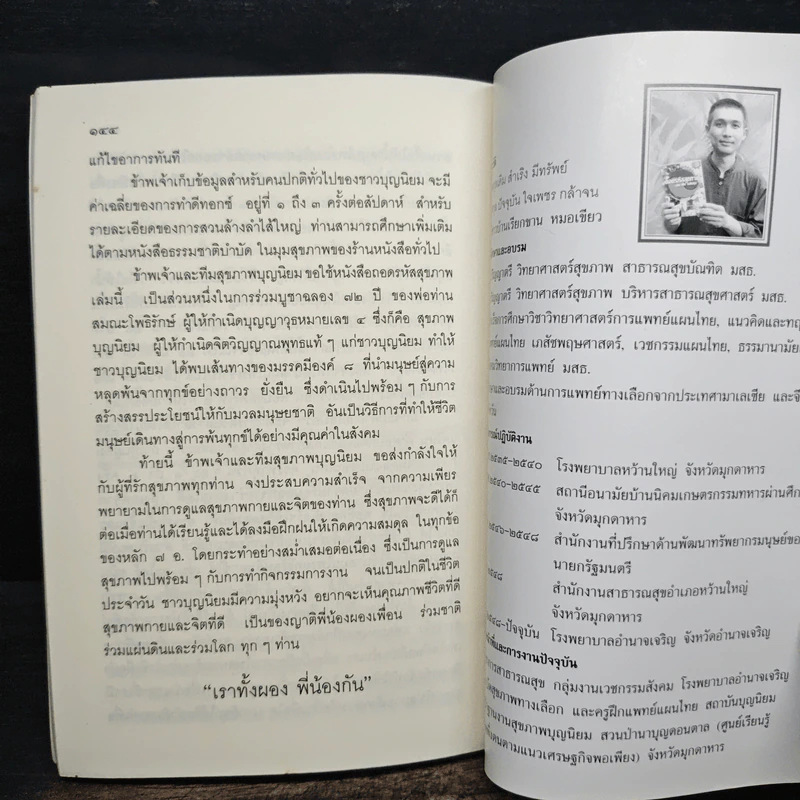 ๑๔๔
แก้ไขอาการทันที
ข้าพเจ้าเก็บข้อมูลสำหรับคนปกติทั่วไปของชาวบุญนิยม จะมี
ค่าเฉลี่ยของการทำดีทอกซ์ อยู่ที่ ๑ ถึง ๓ ครั้งต่อสัปดาห์ สำหรับ
รายละเอียดของการสวนล้างลำไส้ใหญ่ ท่านสามารถศึกษาเพิ่มเติม
ได้ตามหนังสือธรรมชาติบำบัด ในมุมสุขภาพของร้านหนังสือทั่วไป
ข้าพเจ้าและทีมสุขภาพบุญนิยม ขอใช้หนังสือถอดรหัสสุขภาพ
เล่มนี้ เป็นส่วนหนึ่งในการร่วมบูชาฉลอง ๗๒ ปี ของพ่อท่าน
สมณะโพธิรักษ์ ผู้ให้กำเนิดบุญญาวุธหมายเลข ๔ ซึ่งก็คือ สุขภาพ
บุญนิยม ผู้ให้กำเนิดจิตวิญญาณพุทธแท้ ๆ แก่ชาวบุญนิยม ทำให้
ชาวบุญนิยม ได้พบเส้นทางของมรรคมีองค์ ๘ ที่นำมนุษย์สู่ความ
หลุดพ้นจากทุกข์อย่างถาวร ยั่งยืน ซึ่งดำเนินไปพร้อม ๆ กับการ
สร้างสรรประโยชน์ให้กับมวลมนุษยชาติ อันเป็นวิธีการที่ทำให้ชีวิต
มนุษย์เดินทางสู่การพ้นทุกข์ได้อย่างมีคุณค่าในสังคม
ท้ายนี้ ข้าพเจ้าและทีมสุขภาพบุญนิยม ขอส่งกำลังใจให้
กับผู้ที่รักสุขภาพทุกท่าน จงประสบความสำเร็จ จากความเพียร
พยายามในการดูแลสุขภาพกายและจิตของท่าน ซึ่งสุขภาพจะดีได้ก็
ต่อเมื่อท่านได้เรียนรู้และได้ลงมือฝึกฝนให้เกิดความสมดุล ในทุกข้อ
ของหลัก ๗ อ. โดยกระทำอย่างสม่ำเสมอต่อเนื่อง ซึ่งเป็นการดูแล
สุขภาพไปพร้อม ๆ กับการทำกิจกรรมการงาน จนเป็นปกติในชีวิต
ประจำวัน ชาวบุญนิยมมีความมุ่งหวัง อยากจะเห็นคุณภาพชีวิตที่ดี
สุขภาพกายและจิตที่ดี เป็นของญาติพี่น้องผองเพื่อน ร่วมชาติ
ร่วมแผ่นดินและร่วมโลก ทุก ๆ ท่าน
“เราทั้งผอง พี่น้องกัน”
สำเริง มีทรัพย์
ปัจจุบัน ใจเพชร กล้าจน
หมอเขียว
และอบรม
วิทยาศาสตร์สุขภาพ สาธารณสุขบัณฑิต มสธ.
วิทยาศาสตร์สุขภาพ บริหารสาธารณสุขศาสตร์ มสธ.
การศึกษาวิชาวิทยาศาสตร์การแพทย์แผนไทย, แนวคิดและทฤ
แพทย์แผนไทย เภสัชพฤษศาสตร์, เวชกรรมแผนไทย, ธรรมานามัย
วิทยาการแพทย์ มสธ.
และอบรมด้านการแพทย์ทางเลือกจากประเทศมาเลเซีย และจี
ปฏิบัติงาน
๒๕๓๕-๒๕๔๐ โรงพยาบาลหว้านใหญ่ จังหวัดมุกดาหาร
๒๕๔๐-๒๕๔๕ สถานีอนามัยบ้านนิคมเกษตรกรรมทหารผ่านศึก
จังหวัดมุกดาหาร
๒๕๔๖-๒๕๔๘ สำนักงานที่ปรึกษาด้านพัฒนาทรัพยากรมนุษย์ขอ
นายกรัฐมนตรี
สำนักงานสาธารณสุขอำเภอหว้านใหญ่
จังหวัดมุกดาหาร
๕๔๘-ปัจจุบัน โรงพยาบาลอำนาจเจริญ จังหวัดอำนาจเจริญ
ที่และการงานปัจจุบัน
การสาธารณสุข กลุ่มงานเวชกรรมสังคม โรงพยาบาลอำนาจเจริญ
สุขภาพทางเลือก และครูฝึกแพทย์แผนไทย สถาบันบุญนิยม
ฐานงานสุขภาพบุญนิยม สวนป่านาบุญดอนตาล (ศูนย์เรียนรู้
ตนตามแนวเศรษฐกิจพอเพียง) จังหวัดมุกดาหาร